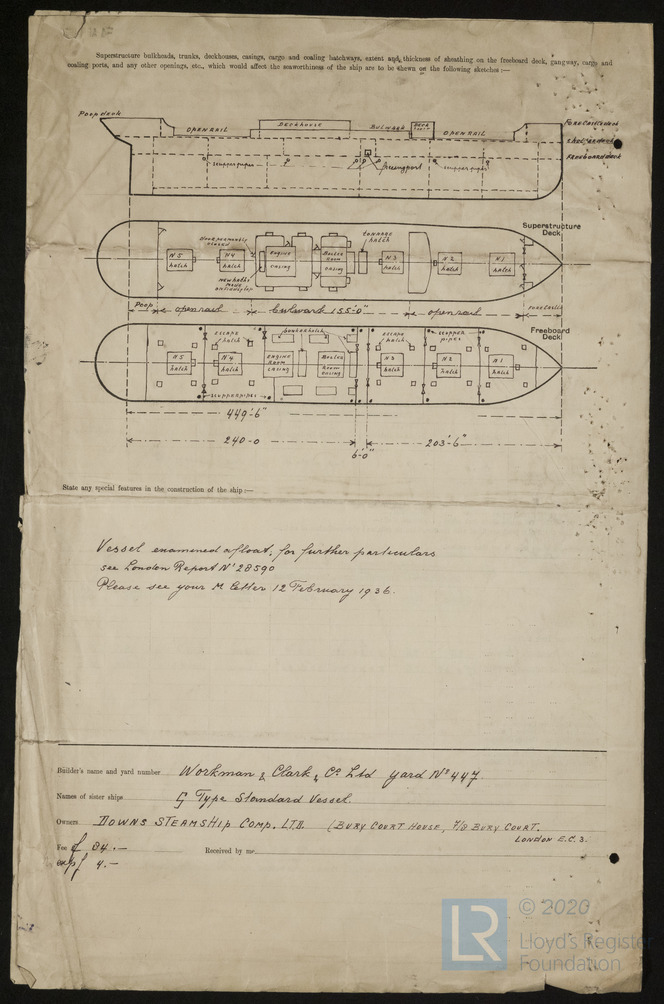 Superstructure bulkheads, trunks, deckhouses, casings, cargo and coaling hatchways, extent and thickness of sheathing on the freeboard deck, gangway, cargo and
coaling ports, and any other openings, etc., which would affect the seaworthiness of the ship are to be shewn on the following sketches:—
Poop deck
OPEN RAIL
DECKHOUSE
BULWARK
DECK
OPEN RAIL
Forecastle deck
Shelter deck
Freeboard deck
scupper pipes
freeing port
scupper pipes
Superstructure
Deck
N 5
hatch
N 4
hatch
ENGINE
casing
Boiler
Room
casing
tonnage
hatch
N 3
hatch
N 2
hatch
N 1
hatch
Poop
open rail
bulwark 155'-0"
open rail
Forecastle
Freeboard
Deck
escape
hatch
bunker hatch
escape
hatch
scupper
pipes
N 5
hatch
N 4
hatch
ENGINE
ROOM
CASING
Boiler
Room
casing
N 3
hatch
N 2
hatch
N 1
hatch
scupper pipes
449'-6"
240-0
203'-6"
6'-0"
State any special features in the construction of the ship:—
Vessel examined afloat; for further particulars
see London Report No 28590
Please see your M letter 12 February 1936.
Builder's name and yard number Workman & Clark & Co Ltd yard No 447.
Names of sister ships G Type Standard Vessel.
Owners DOWNS STEAMSHIP COMP. LTD. (BURY COURT HOUSE, 7/8 BURY COURT.
LONDON E.C. 3.
Fee £ 84.—
Received by me
exp £ 4.—
LR
© 2020
Lloyd's Register
Foundation